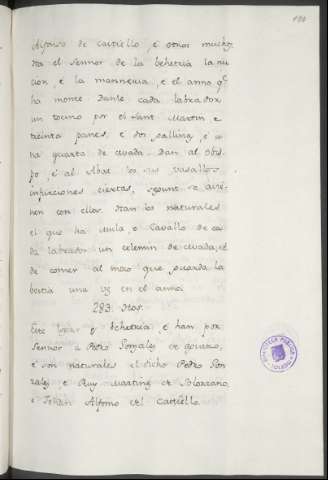 Alfonso de Castiello, e otros muchos
dan al Sennor de la behetria la nu
cion, e la manneria, e el anno q.e
ha monte Danle cada labrador
un tocino por el Sant Martin e
treinta panes, e dos gallinas, e u
na quarta de cevada. Dan al obis
po, e al Abat los sus vasallos
infurciones ciertas, segunt se avie
nen con ellos. Dan los naturales
el que ha Mula, o Cavallo de ca
da labrador un celemin de cevada, e
de comer al mozo que guarda la
bestia una vez en el anno.
283. Nar.
Este logar es Behetria, e han por
Sennor a Pedro Gonzalez de
e son naturales el dicho Pedro Gon
zalez, e Ruy Martinez de Solorzano,
e Johan Alfonso del Castiello.
BIBLIOTECA PUBLICA
TOLEDO